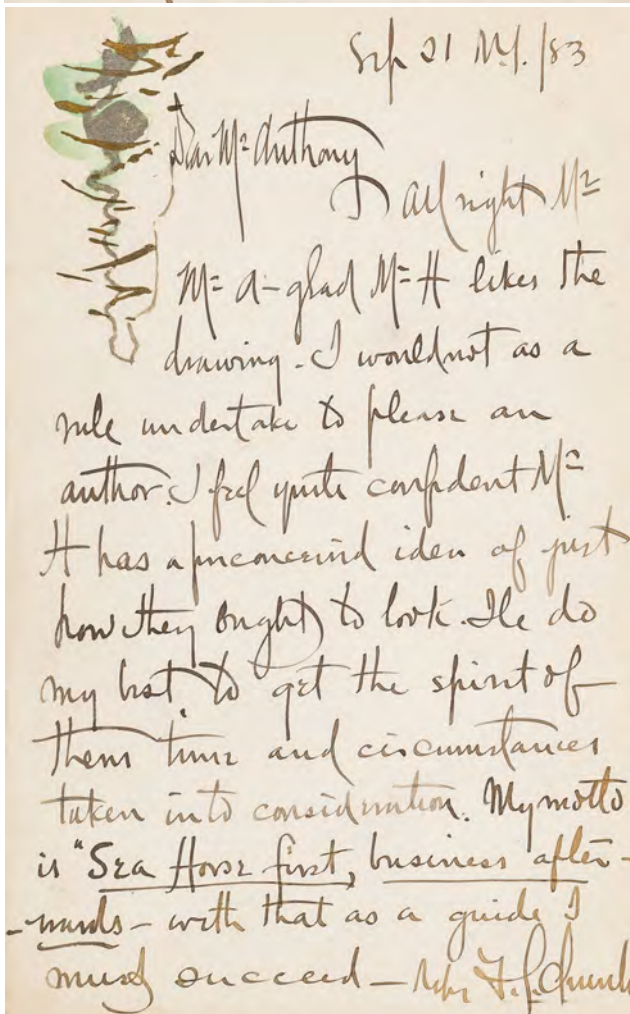 Sep 21 N.Y. /83
Dear Mr Anthony
All right Mr
Mr A- glad Mr H likes the
drawing. I would not as a
rule undertake to please an
author. I feel quite confident Mr
H has a preconceived idea of just
how they ought to look. Ile do
my best to get the spirit of
them time and circumstances
taken into consideration. My motto
is "Sea Horse first, business after-
-wards - with that as a guide I
must succeed - F.S. Church